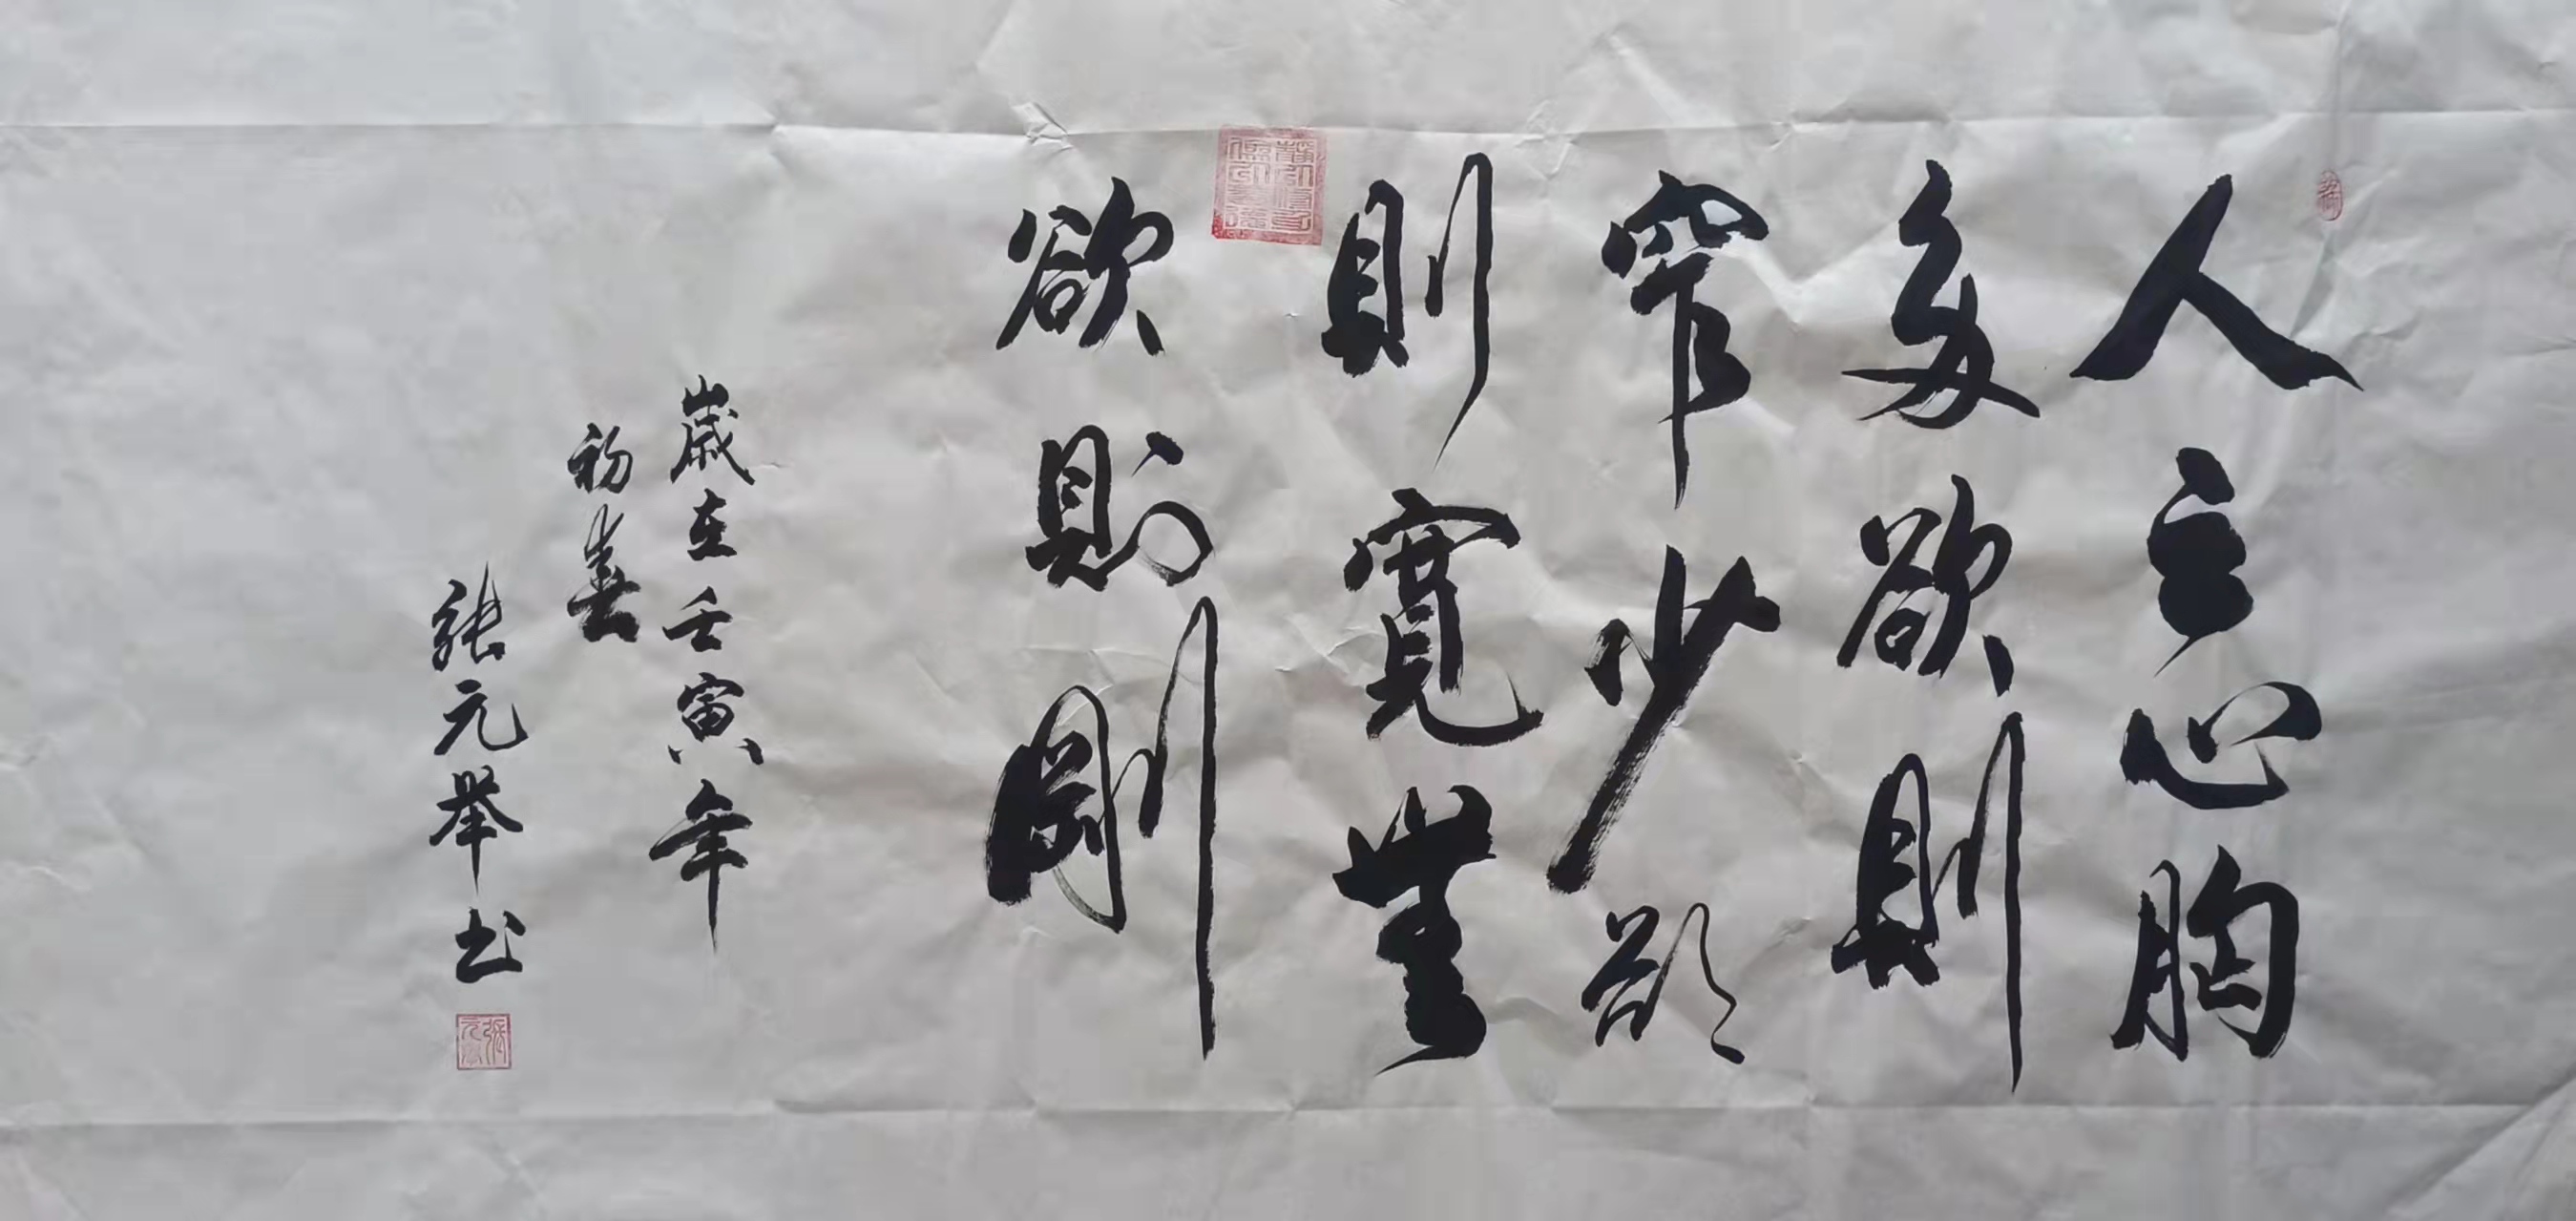 人之心胸
多欲則
窄少欲
則寬無
欲則剛
歲在壬寅年
初春
张元举书